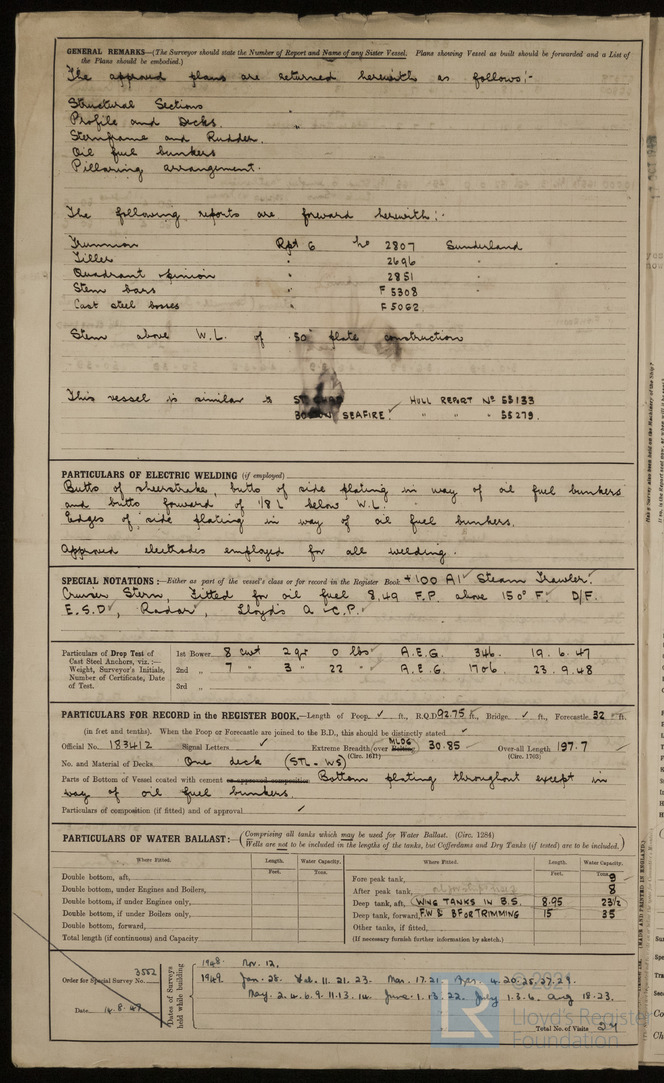 GENERAL REMARKS—(The Surveyor should state the Number of Report and Name of any Sister Vessel. Plans showing Vessel as built should be forwarded and a List of
the Plans should be embodied.)
The approved plans are returned herewith as follows:-
Structural Sections
Profile and Decks.
Sternframe and Rudder.
Oil fuel bunkers
Pillaring arrangement.
The following reports are forward herewith:-
Trunnion Rpt 6 No 2807 Sunderland
Tiller " 2696 "
Quadrant & pinion " 2851 "
Stem bars " F 5308
Cast steel bosses " F 5062.
Stem above W.L. of .50" plate construction
This vessel is similar to ST HULL REPORT No 55133
SEAFIRE " " " 55279.
PARTICULARS OF ELECTRIC WELDING (if employed)
Butts of sheerstrake, butts of side plating in way of oil fuel bunkers
and butts forward of 1/8 L below W.L.
Edges of side plating in way of oil fuel bunkers.
Approved electrodes employed for all welding.
SPECIAL NOTATIONS:—Either as part of the vessel's class or for record in the Register Book +100 A1 Steam Trawler.
Cruiser Stern, Fitted for oil fuel 8.49 F.P. above 150° F. D/F.
E.S.D, Radar, Lloyds A & C.P.
Particulars of Drop Test of
Cast Steel Anchors, viz.:—
Weight, Surveyor's Initials,
Number of Certificate, Date
of Test.
1st Bower 8 cwt 2 qr 0 lbs A.E.G. 346. 19.6.47
2nd " 7 " 3 " 22 " A.E.G. 1706 23.9.48
3rd "
PARTICULARS FOR RECORD in the REGISTER BOOK.—Length of Poop ✓ ft., R.Q.D. 92.75 ft., Bridge ✓ ft., Forecastle 32 ft.
(in feet and tenths). When the Poop or Forecastle are joined to the B.D., this should be distinctly stated ✓
Official No. 183412 Signal Letters ✓ Extreme Breadth (over MLDG) 30.85 Over-all Length 197.7
(Circ. 1611) (Circ. 1703)
No. and Material of Decks One deck (STL - WS)
Parts of Bottom of Vessel coated with cement or approved composition Bottom plating throughout except in
way of oil fuel bunkers.
Particulars of composition (if fitted) and of approval ✓
PARTICULARS OF WATER BALLAST:—(Comprising all tanks which may be used for Water Ballast. (Circ. 1284)
Wells are not to be included in the lengths of the tanks, but Cofferdams and Dry Tanks (if tested) are to be included.)
Where Fitted. Length. Water Capacity. Where Fitted. Length. Water Capacity.
Feet. Tons. Feet. Tons.
Double bottom, aft, Fore peak tank, 9
Double bottom, under Engines and Boilers, After peak tank, 8
Double bottom, if under Engines only, Deep tank, aft, (WING TANKS IN B.S. 8.95 23½
Double bottom, if under Boilers only, Deep tank, forward, F.W & B FOR TRIMMING 15 35
Double bottom, forward, Other tanks, if fitted,
Total length (if continuous) and Capacity (If necessary furnish further information by sketch.)
Order for Special Survey No. 3552
Date 14.8.47
Dates of Surveys
held while building
1948. Nov. 12,
1949. Jan. 28. Feb. 11. 21. 23. Mar. 17. 21. Apr. 4. 20. 25. 27. 29.
May. 2. 4. 6. 9. 11. 13. 14. June. 1. 13. 22. July 1. 3. 6. Aug 18. 23.
Total No. of Visits 27
© 2021
LR
Lloyd's Register
Foundation